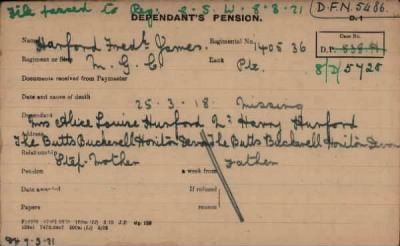 File passed to Reg. S.S.W. 8-8-21
D.F.N. 5486.
DEPENDANT'S PENSION.
D. 1
Name Hurford Fredk James. Regimental No. 140536
Case No.
D.P.
Regiment or Ship M. G. C. Rank Pte.
8/D/5728
Documents received from Paymaster
Date and cause of death
25. 3. 18. Missing
Dependant Mrs Alice Louise Hurford Mr Harry Hurford
Address The Butts Buckerell Honiton Devon The Butts Buckerell Honiton Devon
Relationship Step-Mother Father
Pension a week from
Date awarded If refused
Papers reason
9-3-21